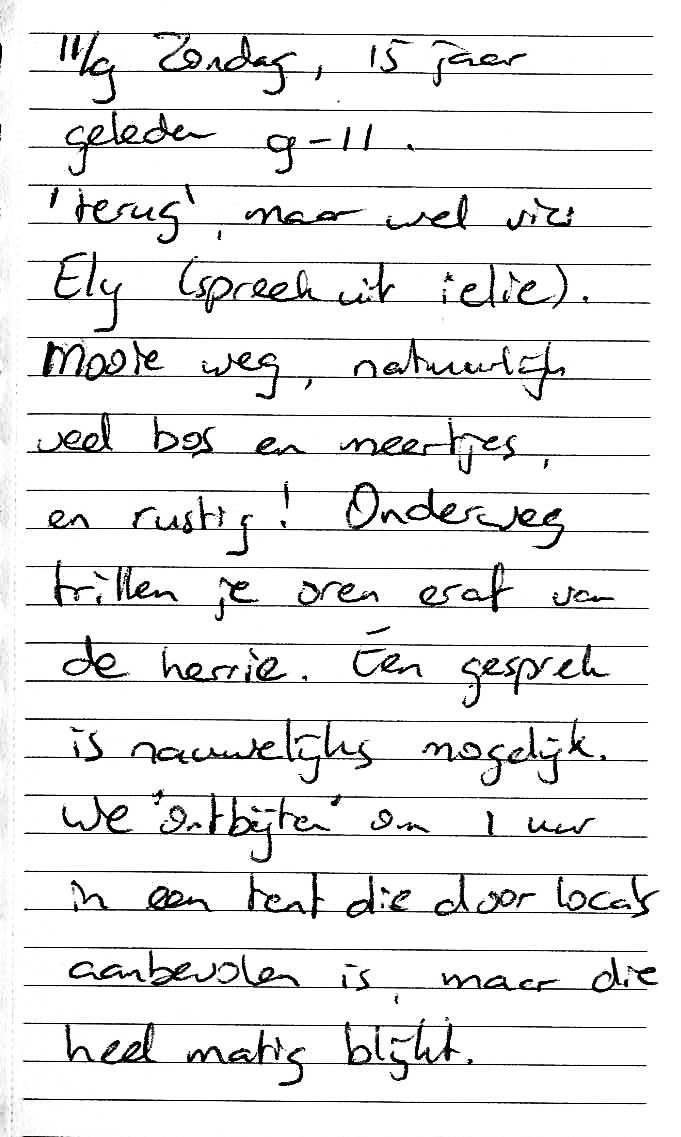 11/9 Zondag, 15 jaar
geleden 9-11.
'terug', maar wel via
Ely (spreek uit ielie).
Mooie weg, natuurlijk
veel bos en meertjes,
en rustig! Onderweg
trillen je oren eraf van
de herrie. Een gesprek
is nauwelijks mogelijk.
We 'ontbijten' om 1 uur
in een tent die door locals
aanbevolen is, maar die
heel matig blijkt.